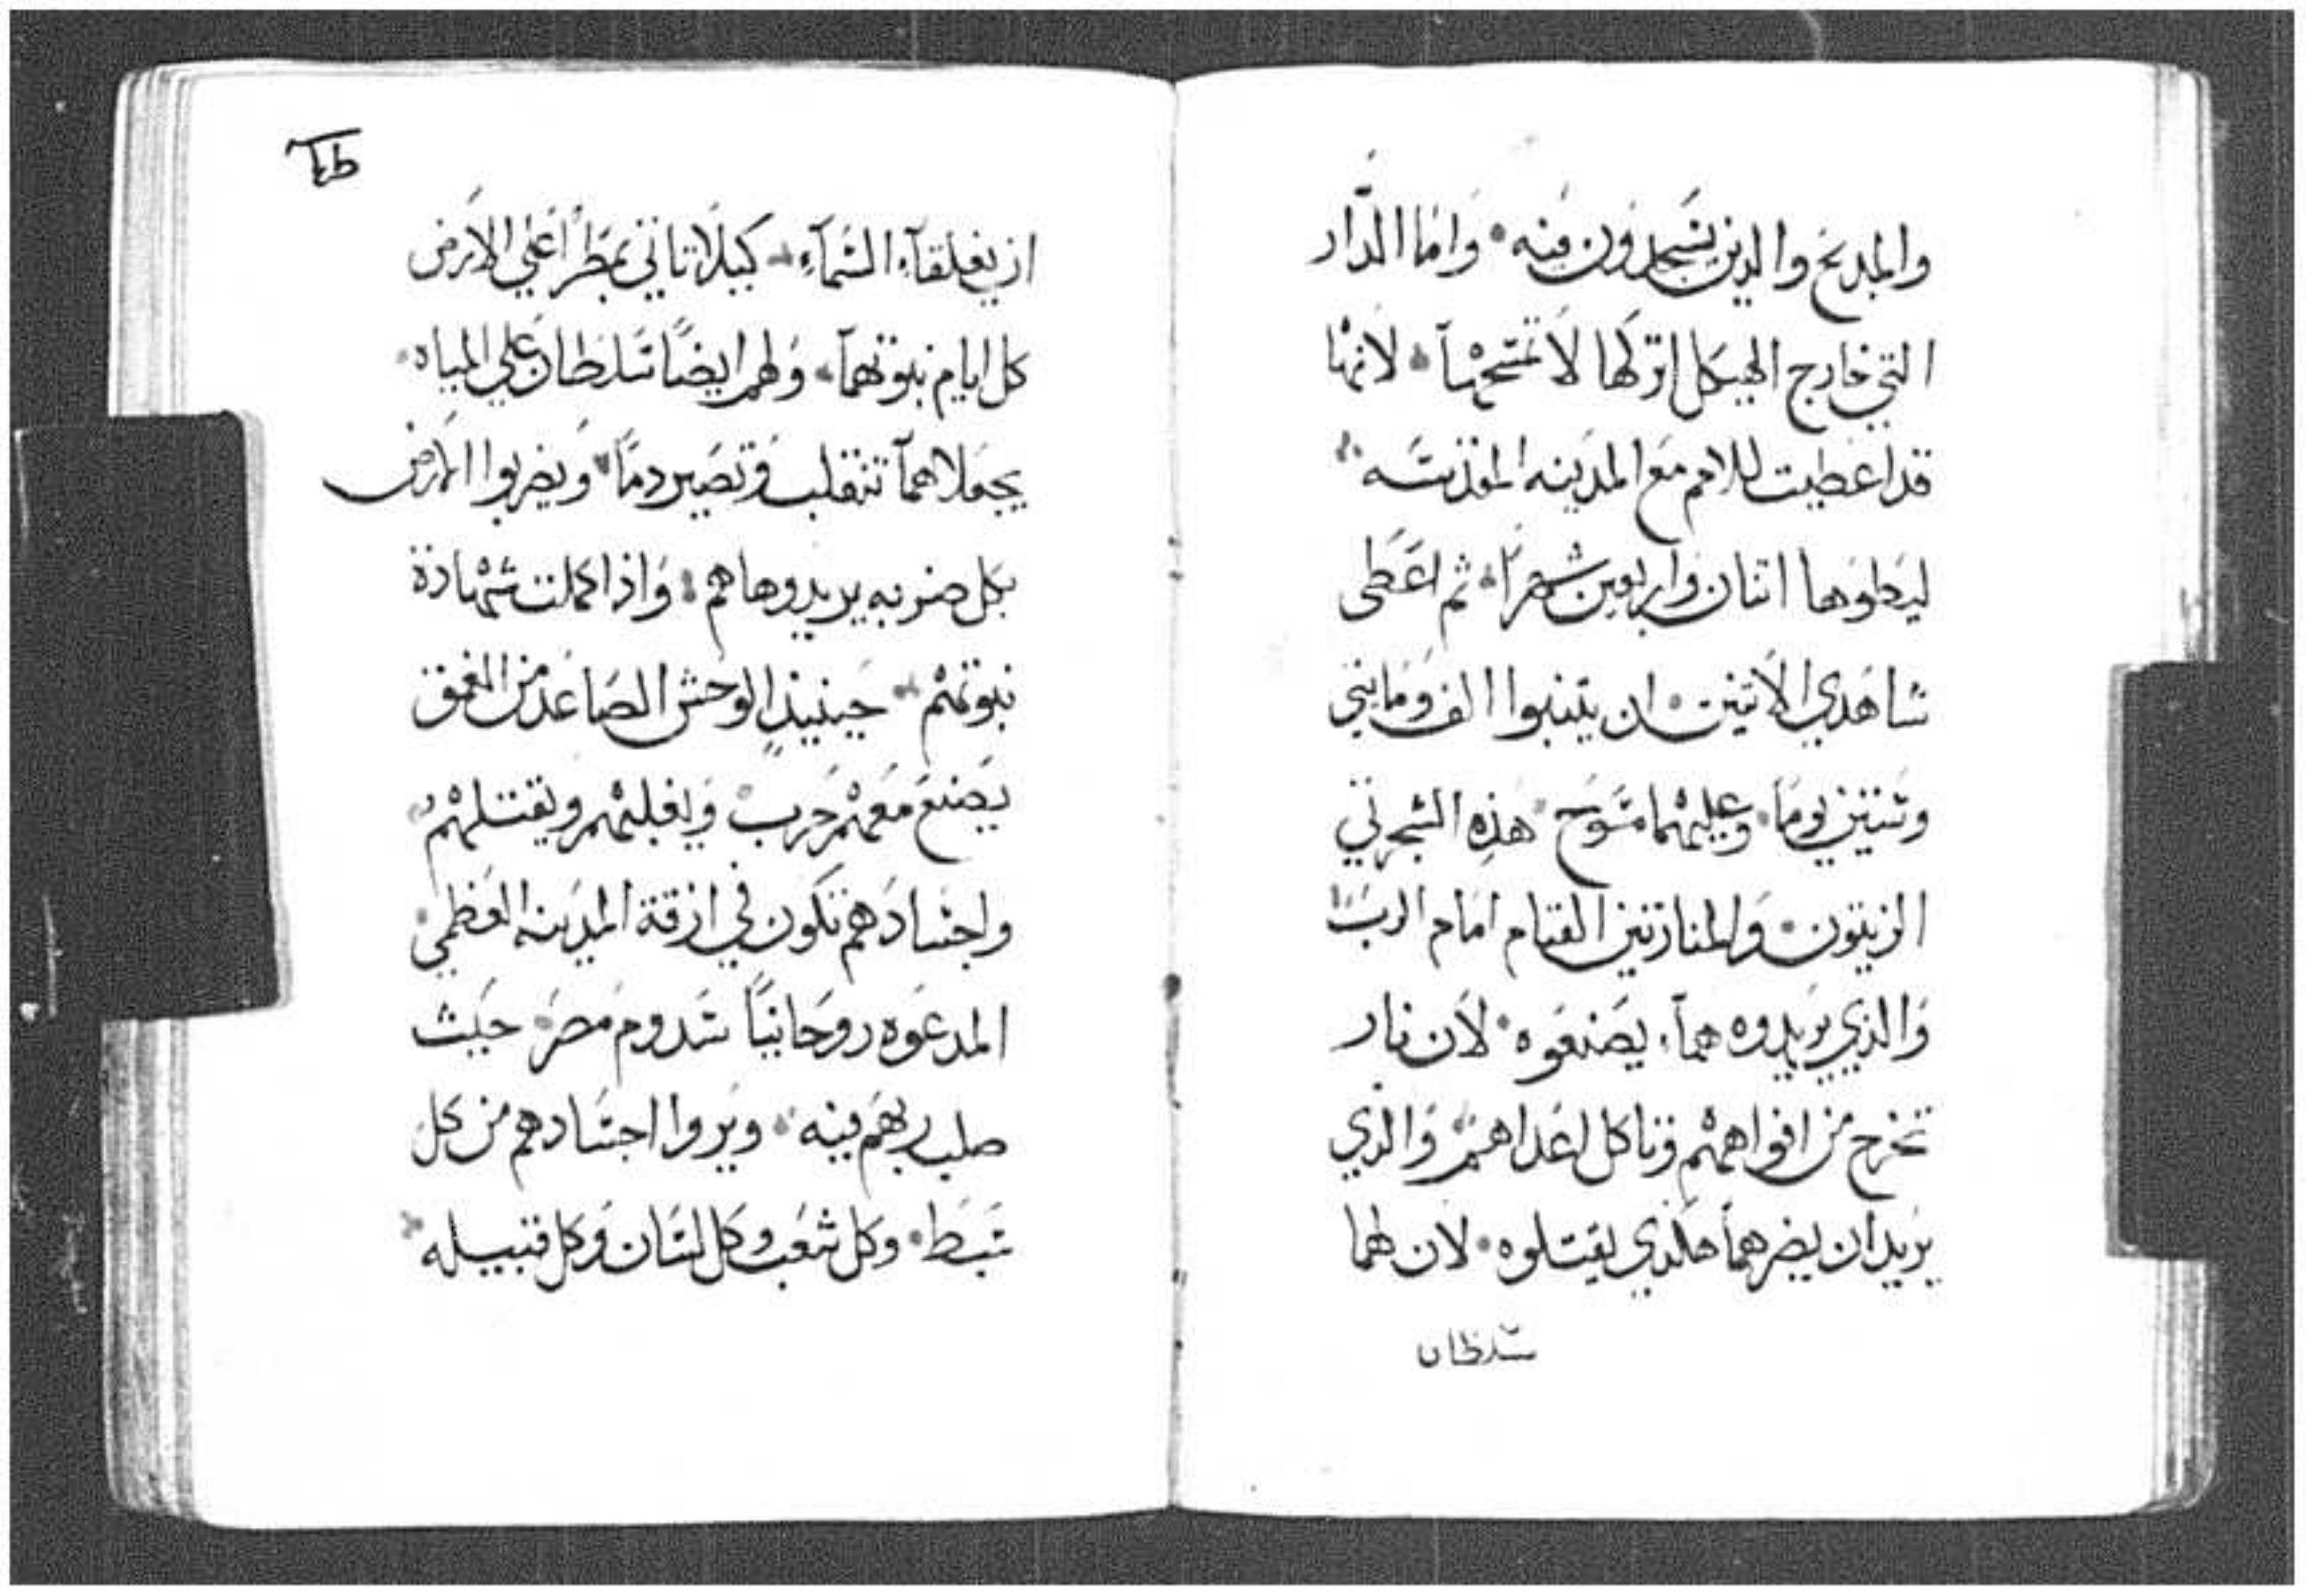 والمدبح والدين يسجدون فيه واما الدار
التي خارج الهيكل اتركها لا تمسحها لانها
قد اعطيت للامم مع المدينه المقدسه
ليطوها اتنان واربعين شهرا ثم اعطى
شاهدي الاتنين ان يتنبوا الف ومايتي
وستين يوما وعليهما مسوح هذه الشجرتي
الزيتون والمنارتين القيام امام الرب
والذي يريدوه هما يصنعوه لان نار
تخرج من افواههم وتاكل اعداهم والذي
يريد ان يضرهما هكذي يقتلوه لان لهما
سلطان
ان يغلقاء السماء كيلا تاتي بمطرا على الارض
كل ايام نبوتهما ولهم ايضا سلطان علي المياه
يجعلاهما تنقلب وتصير دما ويضربوا الارض
بكل ضربه يريدوها هم واذا كملت شهادة
نبوتهم حينيذ الوحش الصاعد من العمق
يصنع معهم حرب ويغلبهم ويقتلهم
واجسادهم تكون في ازقة المدينه العظمي
المدعوه روحانيا سدوم مصر حيث
صلب ربهم فيه ويروا اجسادهم من كل
سبط وكل شعب وكل لسان وكل قبيله